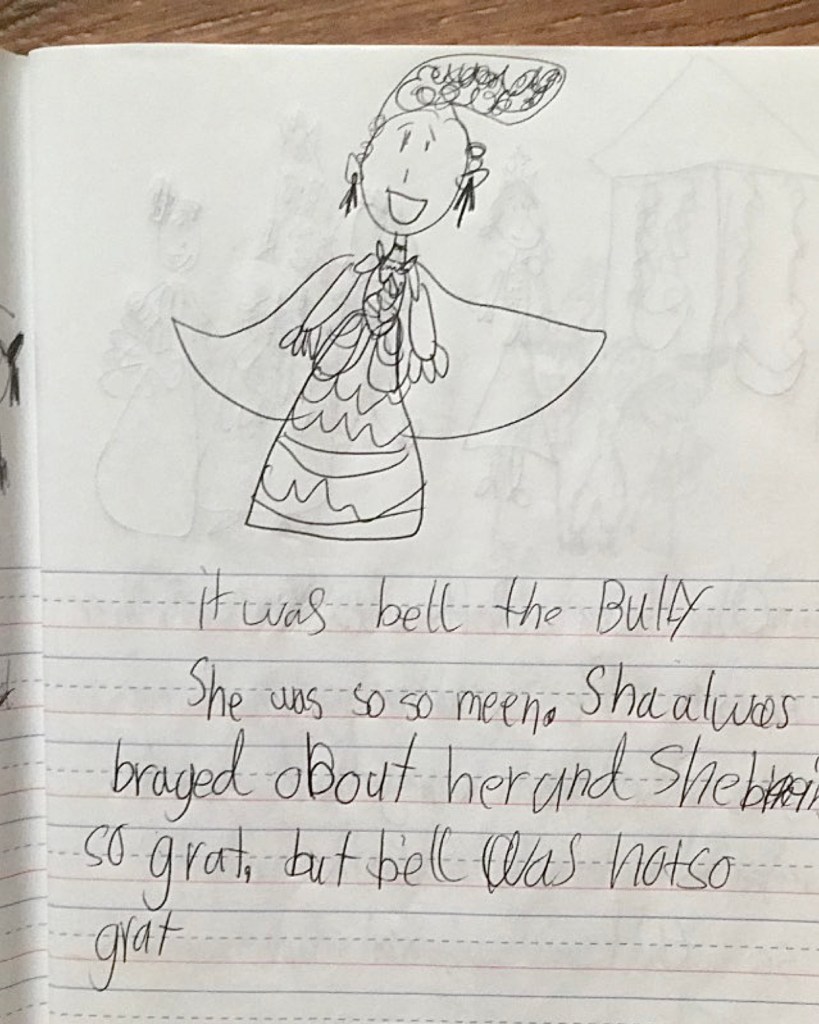 it was bell the BullY
She was so so meen. Sha alwos
braged aBout her and She
so grat, but bell was not so
grat